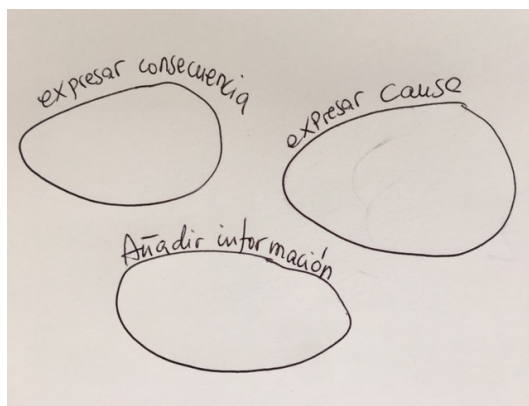 expresar consecuencia
expresar causa
Añadir información